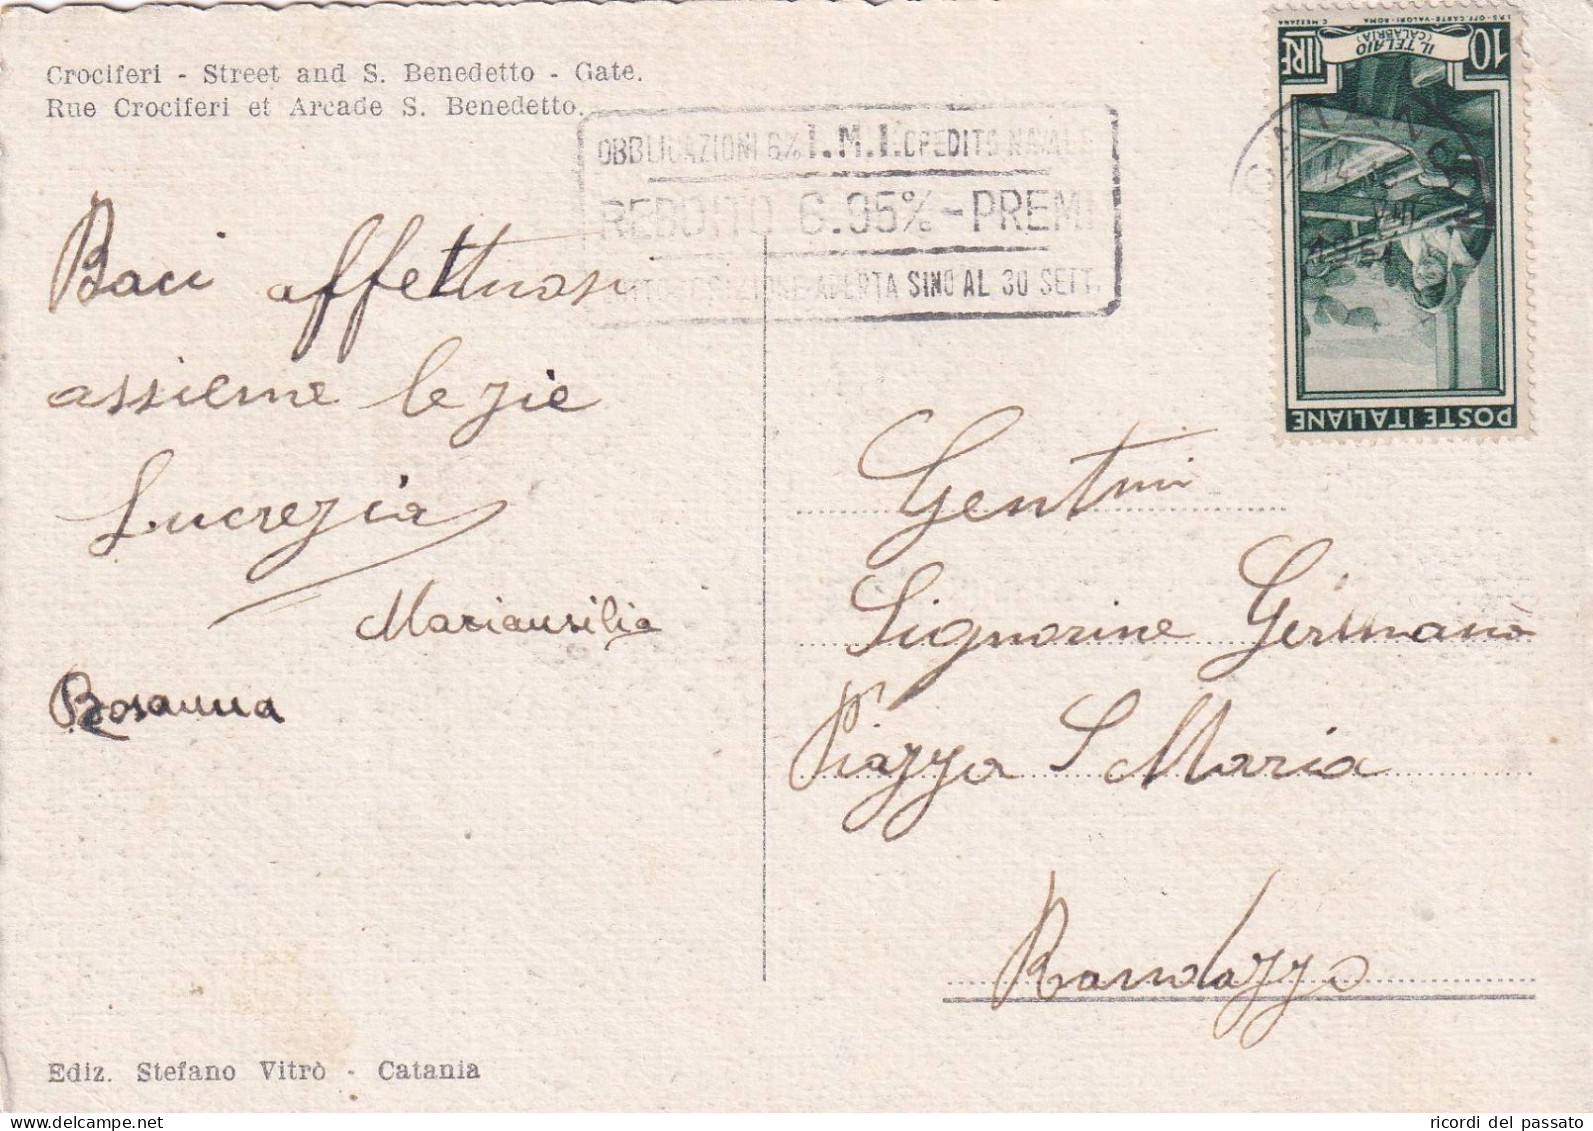 Crociferi - Street and S. Benedetto - Gate.
Rue Crociferi et Arcade S. Benedetto.
OBBLIGAZIONI 6% I.M.I. CREDITO NAVALE
REDDITO 6.95% - PREMI
APERTA SINO AL 30 SETT.
10 LIRE
IL TELAIO
(CALABRIA)
I.P.S. - OFF. CARTE-VALORI - ROMA
C. MEZZANA
POSTE ITALIANE
CATANIA
Baci affettuosi
assieme le zie
Lucrezia
Mariausilia
Rosanna
Gent.mi
Signorine Germanà
Piazza S Maria
Randazzo
Ediz. Stefano Vitrò - Catania
ricordi del passato